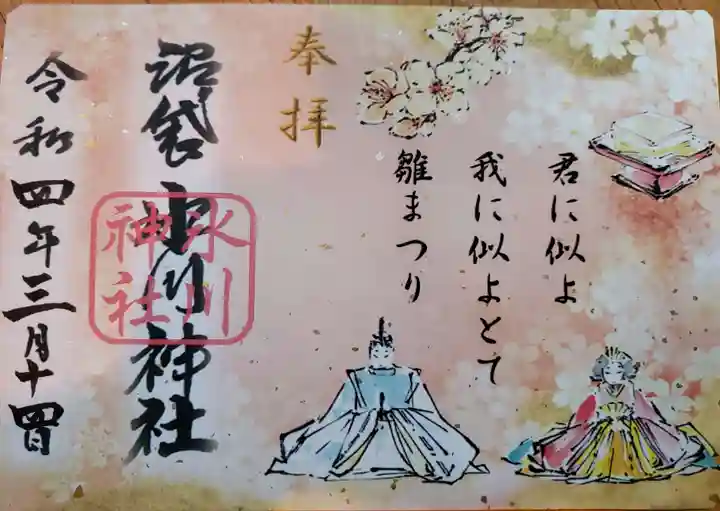 君に似よ
我に似よとて
雛まつり
奉拝
沼袋 氷川神社
氷川
神社
令和四年三月十四日